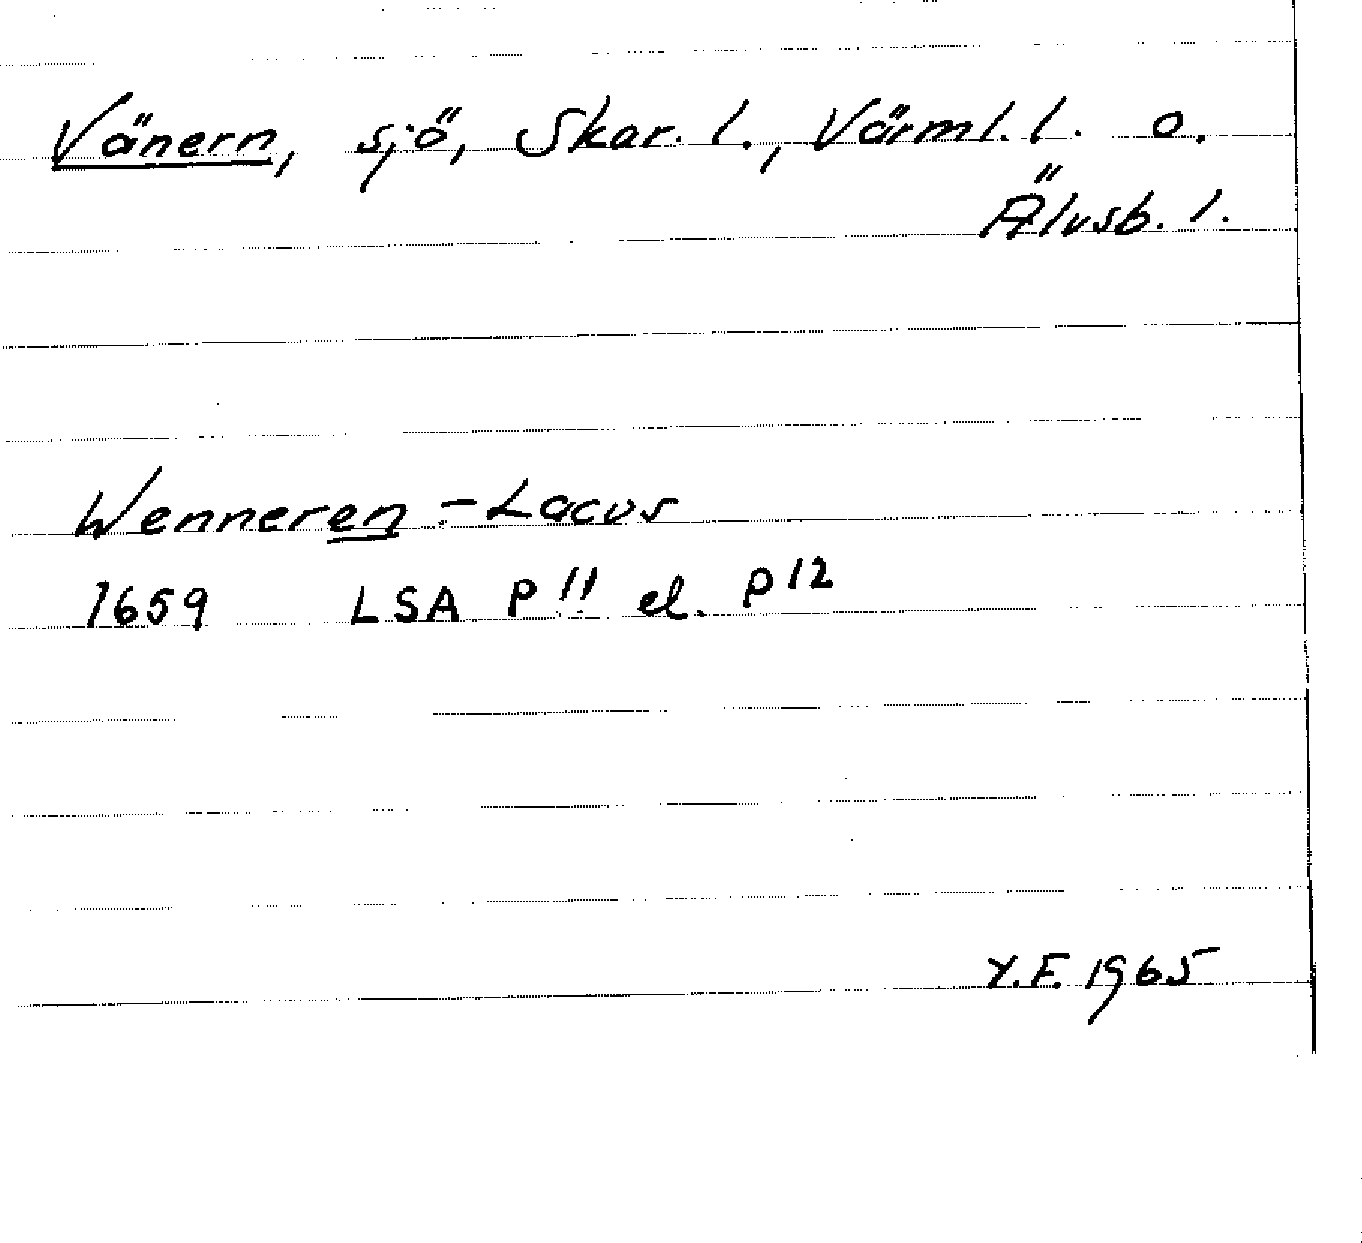 Vänern, sjö, Skar. l., Värml. l. o.
Älvsb. l.
Wenneren - Lacus
1659 LSA P 11 el. P 12
Y.F. 1965